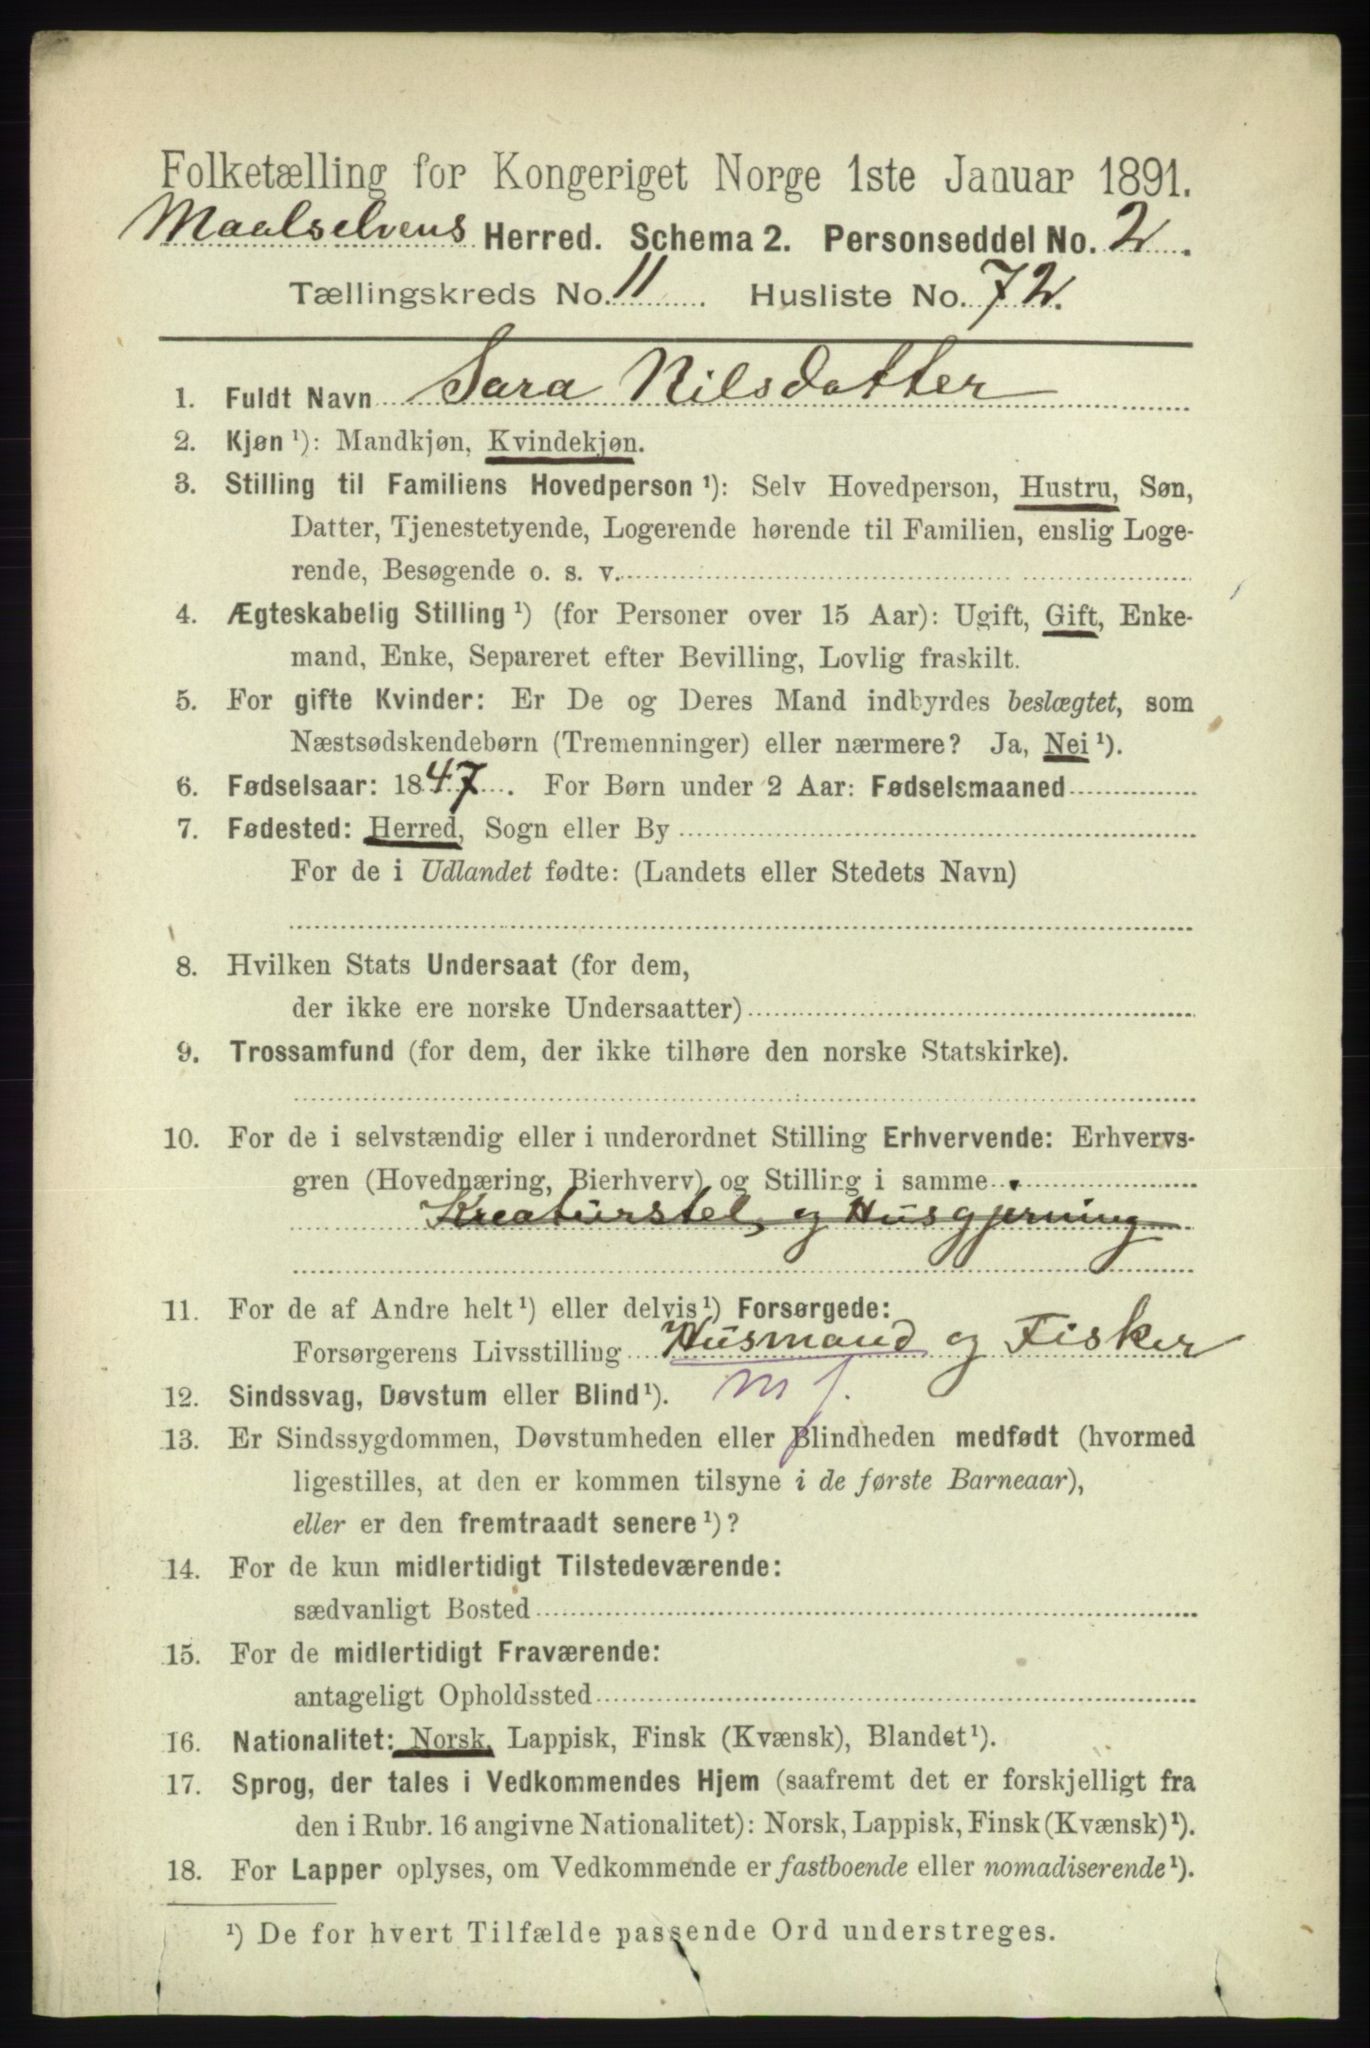 Folketælling for Kongeriget Norge 1ste Januar 1891.
Maalselvens Herred. Schema 2. Personseddel No. 2.
Tællingskreds No. 11 Husliste No. 72.
1. Fuldt Navn Sara Nilsdatter
2. Kjøn ¹): Mandkjøn, Kvindekjøn.
3. Stilling til Familiens Hovedperson ¹): Selv Hovedperson, Hustru, Søn,
Datter, Tjenestetyende, Logerende hørende til Familien, enslig Loge-
rende, Besøgende o. s. v.
4. Ægteskabelig Stilling ¹) (for Personer over 15 Aar): Ugift, Gift, Enke-
mand, Enke, Separeret efter Bevilling, Lovlig fraskilt.
5. For gifte Kvinder: Er De og Deres Mand indbyrdes beslægtet, som
Næstsødskendebørn (Tremenninger) eller nærmere? Ja, Nei ¹).
6. Fødselsaar: 1847. For Børn under 2 Aar: Fødselsmaaned
7. Fødested: Herred, Sogn eller By
For de i Udlandet fødte: (Landets eller Stedets Navn)
8. Hvilken Stats Undersaat (for dem,
der ikke ere norske Undersaatter)
9. Trossamfund (for dem, der ikke tilhøre den norske Statskirke).
10. For de i selvstændig eller i underordnet Stilling Erhvervende: Erhvervs-
gren (Hovednæring, Bierhverv) og Stilling i samme
Kreaturstel, og Husgjerning
11. For de af Andre helt ¹) eller delvis ¹) Forsørgede:
Forsørgerens Livsstilling Husmand og Fisker
12. Sindssvag, Døvstum eller Blind ¹). m f.
13. Er Sindssygdommen, Døvstumheden eller Blindheden medfødt (hvormed
ligestilles, at den er kommen tilsyne i de første Barneaar),
eller er den fremtraadt senere ¹)?
14. For de kun midlertidigt Tilstedeværende:
sædvanligt Bosted
15. For de midlertidigt Fraværende:
antageligt Opholdssted
16. Nationalitet: Norsk, Lappisk, Finsk (Kvænsk), Blandet ¹).
17. Sprog, der tales i Vedkommendes Hjem (saafremt det er forskjelligt fra
den i Rubr. 16 angivne Nationalitet): Norsk, Lappisk, Finsk (Kvænsk) ¹).
18. For Lapper oplyses, om Vedkommende er fastboende eller nomadiserende ¹).
¹) De for hvert Tilfælde passende Ord understreges.